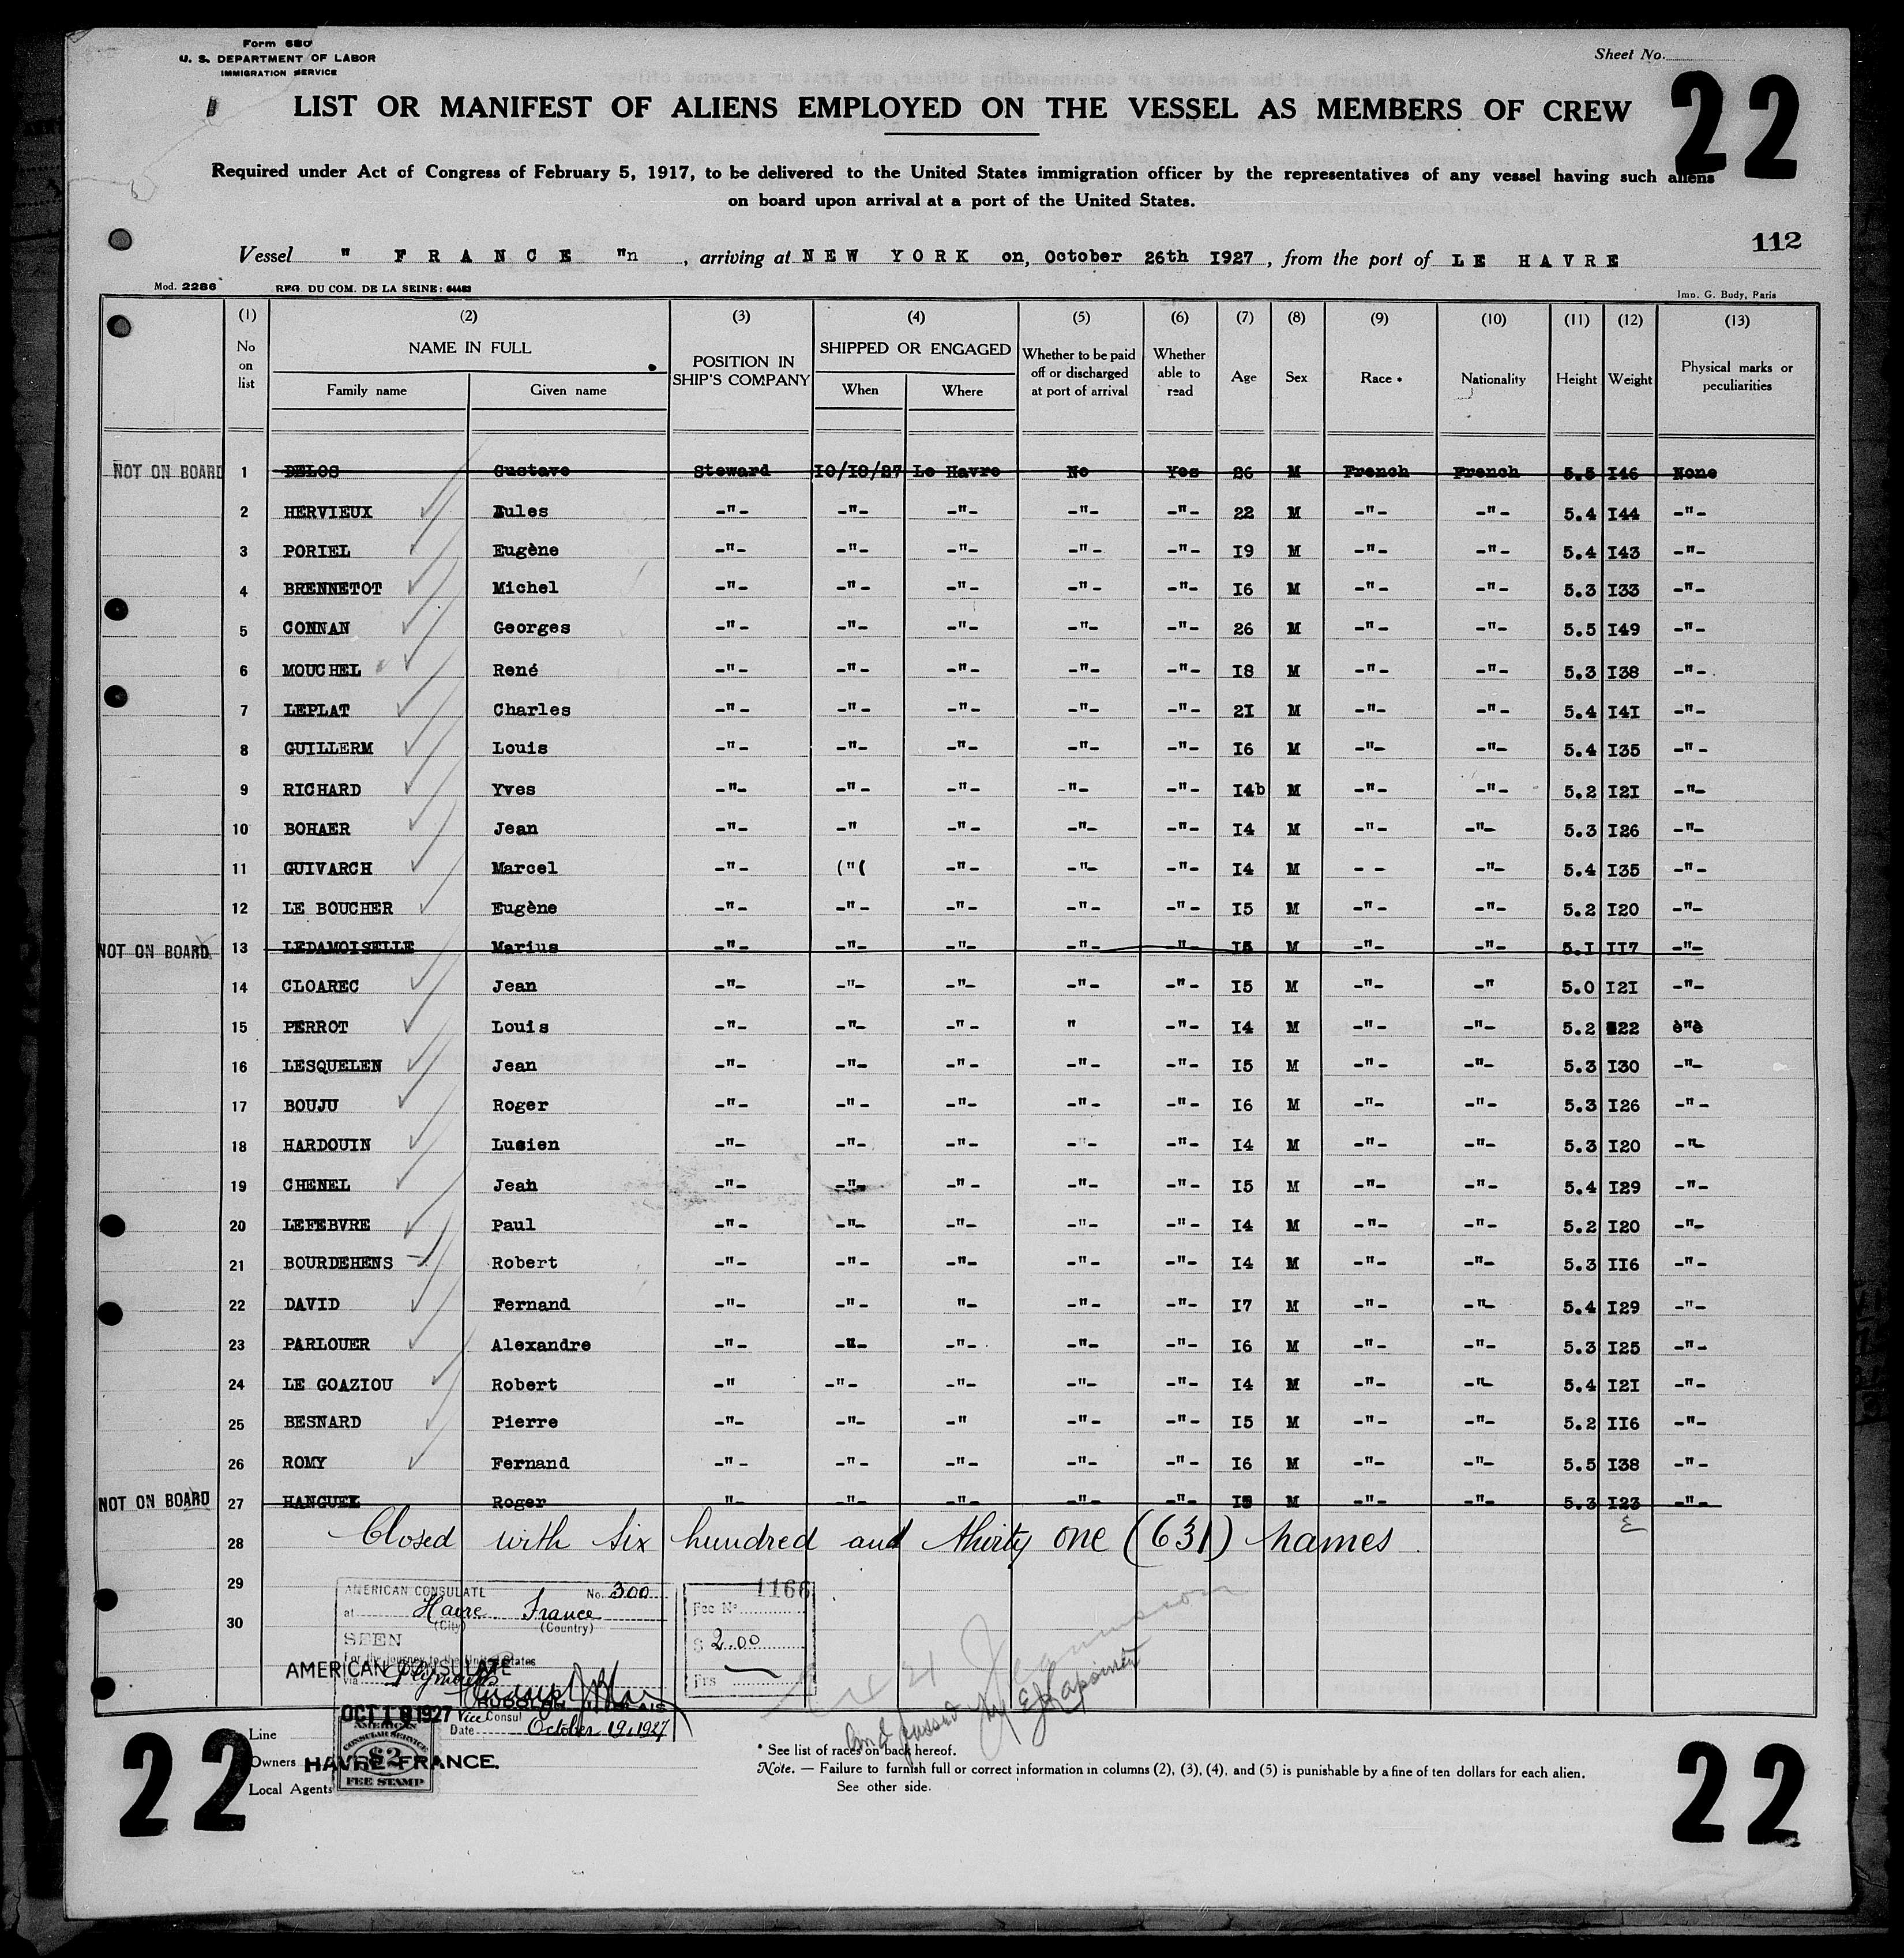 Form 680
U. S. DEPARTMENT OF LABOR
IMMIGRATION SERVICE
Sheet No.
22
LIST OR MANIFEST OF ALIENS EMPLOYED ON THE VESSEL AS MEMBERS OF CREW
Required under Act of Congress of February 5, 1917, to be delivered to the United States immigration officer by the representatives of any vessel having such aliens
on board upon arrival at a port of the United States.
112
Vessel " F R A N C E "n , arriving at N E W Y O R K on, October 26th I927 , from the port of L E H A V R E
Mod. 2286 REG. DU COM. DE LA SEINE: 64483 Imp. G. Budy, Paris
(1) (2) (3) (4) (5) (6) (7) (8) (9) (10) (11) (12) (13)
No on list NAME IN FULL Family name Given name POSITION IN SHIP'S COMPANY SHIPPED OR ENGAGED When Where Whether to be paid off or discharged at port of arrival Whether able to read Age Sex Race * Nationality Height Weight Physical marks or peculiarities
NOT ON BOARD 1 DELOS Gustave Steward I0/I8/27 Le Havre No Yes 26 M French French 5.5 I46 None
2 HERVIEUX Jules -"- -"- -"- -"- -"- 22 M -"- -"- 5.4 I44 -"-
3 PORIEL Eugène -"- -"- -"- -"- -"- I9 M -"- -"- 5.4 I43 -"-
4 BRENNETOT Michel -"- -"- -"- -"- -"- I6 M -"- -"- 5.3 I33 -"-
5 CONNAN Georges -"- -"- -"- -"- -"- 26 M -"- -"- 5.5 I49 -"-
6 MOUCHEL René -"- -"- -"- -"- -"- I8 M -"- -"- 5.3 I38 -"-
7 LEPLAT Charles -"- -"- -"- -"- -"- 2I M -"- -"- 5.4 I4I -"-
8 GUILLERM Louis -"- -"- -"- -"- -"- I6 M -"- -"- 5.4 I35 -"-
9 RICHARD Yves -"- -"- -"- -"- -"- I4b M -"- -"- 5.2 I2I -"-
10 BOHAER Jean -"- -" -"- -"- -"- I4 M -"- -"- 5.3 I26 -"-
11 GUIVARCH Marcel -"- ("( -"- -"- -"- I4 M - - -"- 5.4 I35 -"-
12 LE BOUCHER Eugène -"- -"- -"- -"- -"- I5 M -"- -"- 5.2 I20 -"-
NOT ON BOARD 13 LEDAMOISELLE Marius -"- -"- -"- -"- -"- I5 M -"- -"- 5.I II7 -"-
14 CLOAREC Jean -"- -"- -"- -"- -"- I5 M -"- -" 5.0 I2I -"-
15 PERROT Louis -"- -"- -"- " -"- I4 M -"- -"- 5.2 I22 è"è
16 LESQUELEN Jean -"- -"- -"- -"- -"- I5 M -"- -"- 5.3 I30 -"-
17 BOUJU Roger -"- -"- -"- -"- -"- I6 M -"- -"- 5.3 I26 -"-
18 HARDOUIN Lucien -"- -"- -"- -"- -"- I4 M -"- -"- 5.3 I20 -"-
19 CHENEL Jean -"- -"- -"- -"- -"- I5 M -"- -"- 5.4 I29 -"-
20 LEFEBVRE Paul -"- -"- -"- -"- -"- I4 M -"- -"- 5.2 I20 -"-
21 BOURDEHENS Robert -"- -"- -"- -"- -"- I4 M -"- -"- 5.3 II6 -"-
22 DAVID Fernand -"- -"- "- -"- -"- I7 M -"- -"- 5.4 I29 -"-
23 PARLOUER Alexandre -"- -"- -"- -"- -"- I6 M -"- -"- 5.3 I25 -"-
24 LE GOAZIOU Robert -" -"- -"- -"- -"- I4 M -"- -"- 5.4 I2I -"-
25 BESNARD Pierre -"- -"- -" -"- -"- I5 M -"- -"- 5.2 II6 -"-
26 ROMY Fernand -"- -"- -"- -"- -"- I6 M -"- -"- 5.5 I38 -"-
NOT ON BOARD 27 HANGUEL Roger "- -"- -"- -"- -"- M -"- -"- 5.3 I23 -"-
28 Closed with six hundred and thirty one (631) names
29
30
AMERICAN CONSULATE No. 300
at Havre France
(City) (Country)
SEEN
For the journey to the United States
via Plymouth
AMERICAN CONSULATE
OCT 19 1927 Vice Consul
Date October 19, 1927
HAVRE-FRANCE.
1166
Fee No
$ 2.00
Frs
AMERICAN
CONSULAR SERVICE
$2
FEE STAMP
and passed by
Line
Owners
Local Agents
* See list of races on back hereof.
Note. — Failure to furnish full or correct information in columns (2), (3), (4), and (5) is punishable by a fine of ten dollars for each alien.
See other side.
22
22